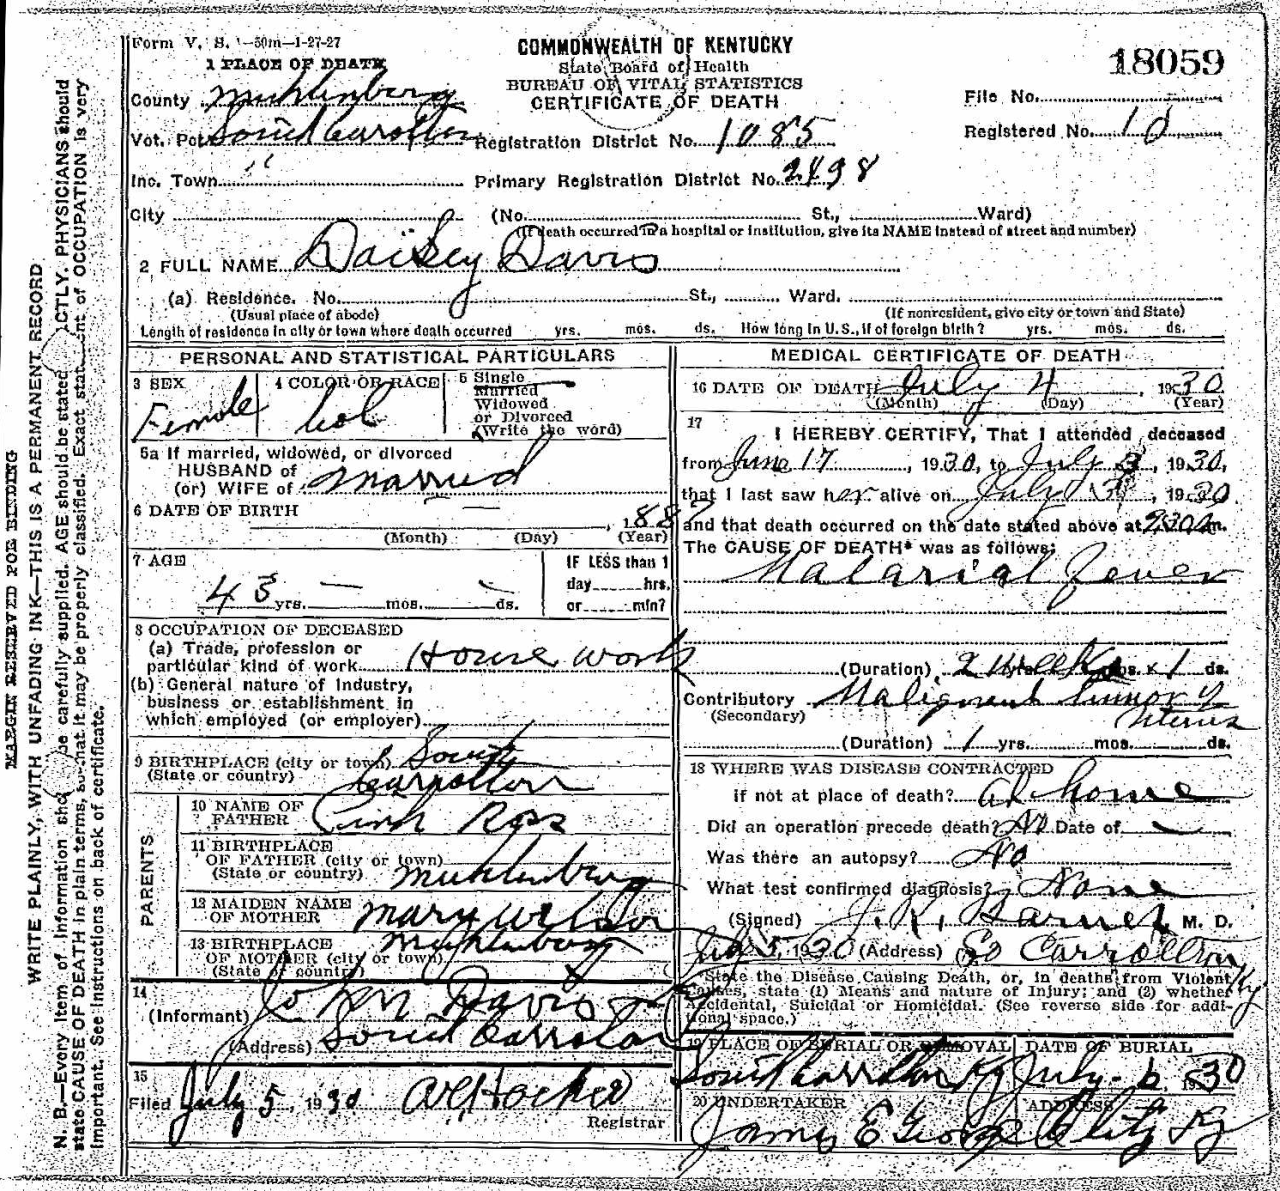 Form V. S. 1-50m-1-27-27
COMMONWEALTH OF KENTUCKY
State Board of Health
BUREAU OF VITAL STATISTICS
CERTIFICATE OF DEATH
18059
1 PLACE OF DEATH
County Muhlenberg
File No.
Vot. Pct. South Carrollton Registration District No. 1085
Registered No. 10
Inc. Town " Primary Registration District No. 2498
City (No. St., Ward)
(If death occurred in a hospital or institution, give its NAME instead of street and number)
2 FULL NAME Daisey Davis
(a) Residence. No. St., Ward.
(Usual place of abode) (If nonresident, give city or town and State)
Length of residence in city or town where death occurred yrs. mos. ds. How long in U.S., if of foreign birth? yrs. mos. ds.
PERSONAL AND STATISTICAL PARTICULARS
3 SEX Female
4 COLOR OR RACE Col
5 Single
Married
Widowed
or Divorced
(Write the word)
5a If married, widowed, or divorced
HUSBAND of
(or) WIFE of Married
6 DATE OF BIRTH 1887
(Month) (Day) (Year)
7 AGE
43 yrs. — mos. ds.
IF LESS than 1
day hrs.
or min?
8 OCCUPATION OF DECEASED
(a) Trade, profession or
particular kind of work House work
(b) General nature of Industry,
business or establishment in
which employed (or employer)
9 BIRTHPLACE (city or town) South
(State or country) Carrollton
PARENTS
10 NAME OF
FATHER Ross
11 BIRTHPLACE
OF FATHER (city or town)
(State or country) Muhlenberg
12 MAIDEN NAME
OF MOTHER Mary
13 BIRTHPLACE Muhlenberg
OF MOTHER (city or town)
(State or country)
14
(Informant) John Davis
(Address) South Carrollton
15
Filed July 5, 1930
Registrar
MEDICAL CERTIFICATE OF DEATH
16 DATE OF DEATH July 4, 1930
(Month) (Day) (Year)
17
I HEREBY CERTIFY, That I attended deceased
from June 17, 1930, to July 3, 1930,
that I last saw her alive on July 3, 1930
and that death occurred on the date stated above at m.
The CAUSE OF DEATH* was as follows:
Malarial Fever
(Duration) 2 weeks mos. 1 ds.
Contributory Malignant tumor of
(Secondary) Uterus
(Duration) 1 yrs. mos. ds.
18 WHERE WAS DISEASE CONTRACTED
if not at place of death? at home
Did an operation precede death? No Date of —
Was there an autopsy? No
What test confirmed diagnosis? None
(Signed) J. K. M. D.
July 5, 1930 (Address) So Carrollton Ky
*State the Disease Causing Death, or, in deaths from Violent
Causes, state (1) Means and nature of Injury; and (2) whether
Accidental, Suicidal or Homicidal. (See reverse side for addi-
tional space.)
19 PLACE OF BURIAL OR REMOVAL DATE OF BURIAL
South Carrollton Ky July 6 1930
20 UNDERTAKER ADDRESS
James E George Ky
MARGIN RESERVED FOR BINDING
WRITE PLAINLY, WITH UNFADING INK—THIS IS A PERMANENT RECORD
N. B.—Every item of information should be carefully supplied. AGE should be stated EXACTLY. PHYSICIANS should
state CAUSE OF DEATH in plain terms, so that it may be properly classified. Exact statement of OCCUPATION is very
important. See instructions on back of certificate.